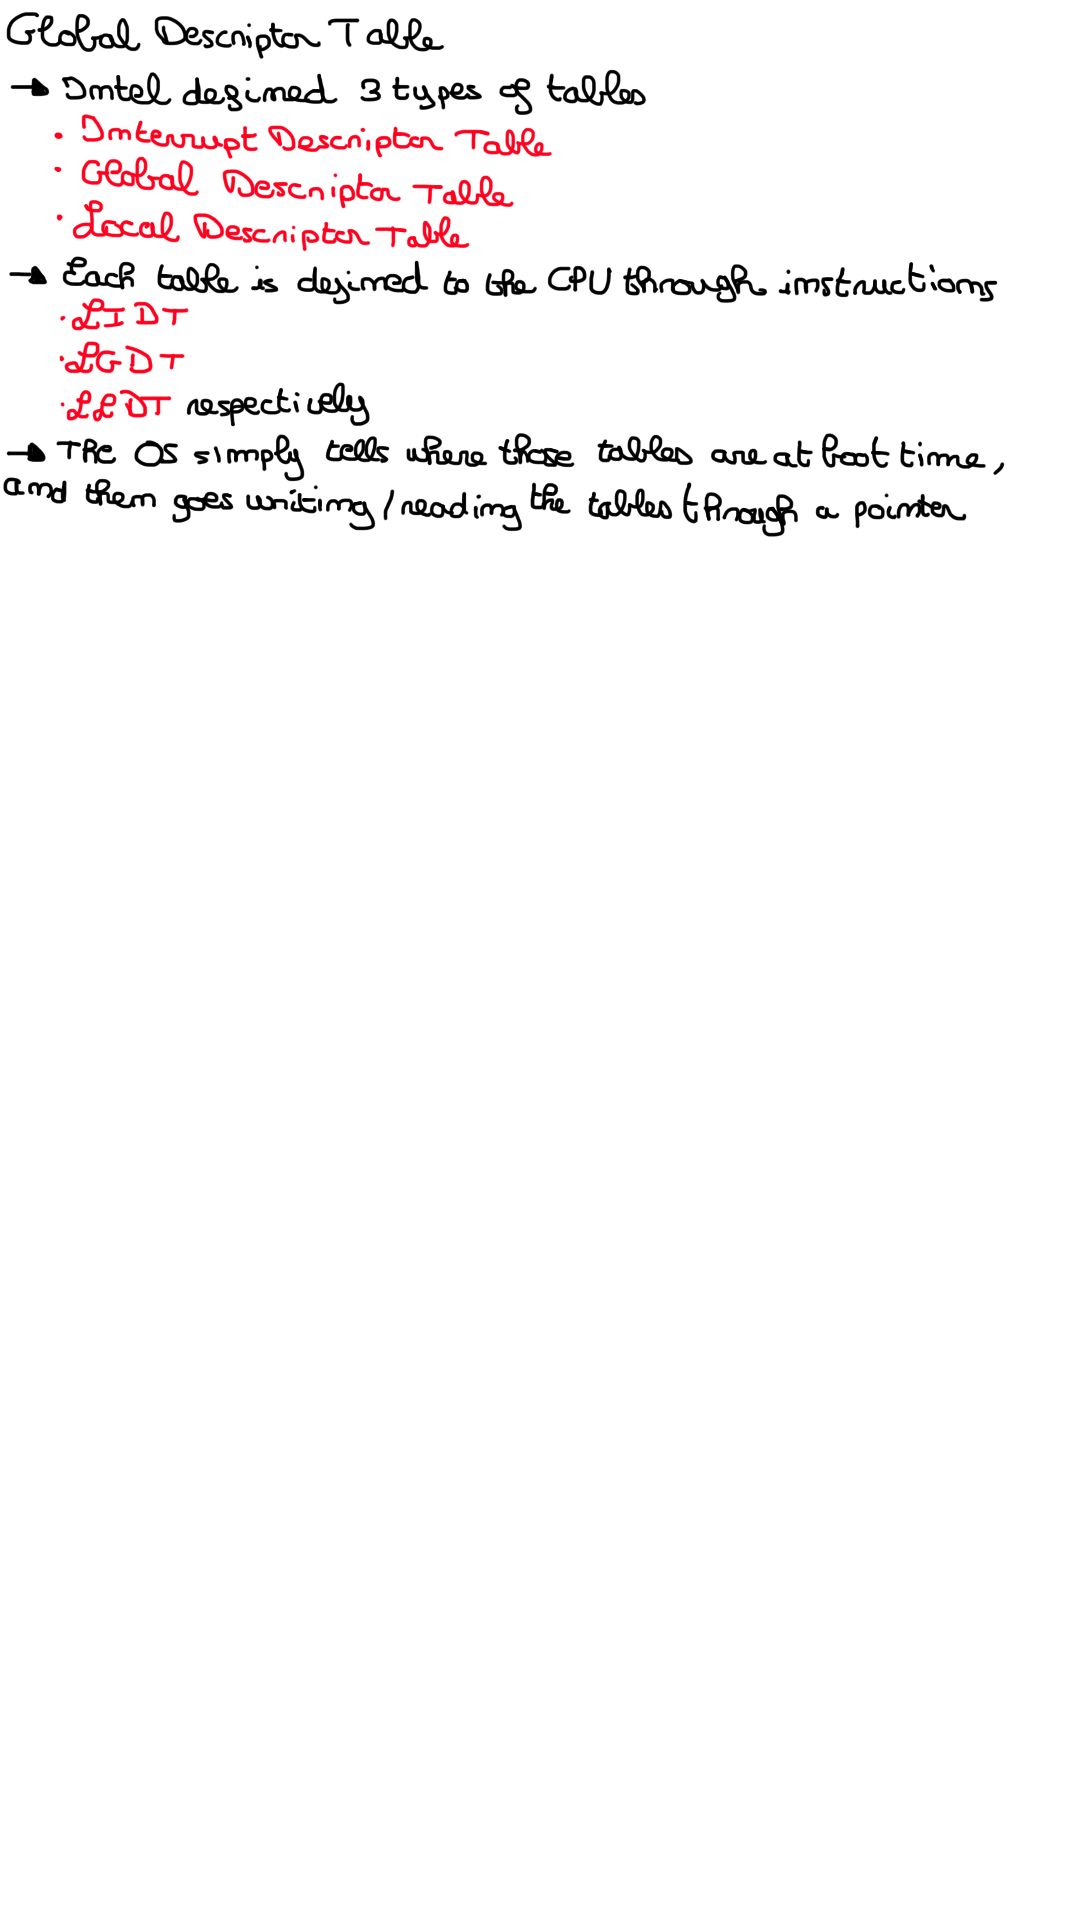 Global Descriptor Table
→ Intel defined 3 types of tables
• Interrupt Descriptor Table
• Global Descriptor Table
• Local Descriptor Table
→ Each table is defined to the CPU through instructions
• LIDT
• LGDT
• LLDT respectively
→ The OS simply tells where those tables are at boot time,
and then goes writing/reading the tables through a pointer